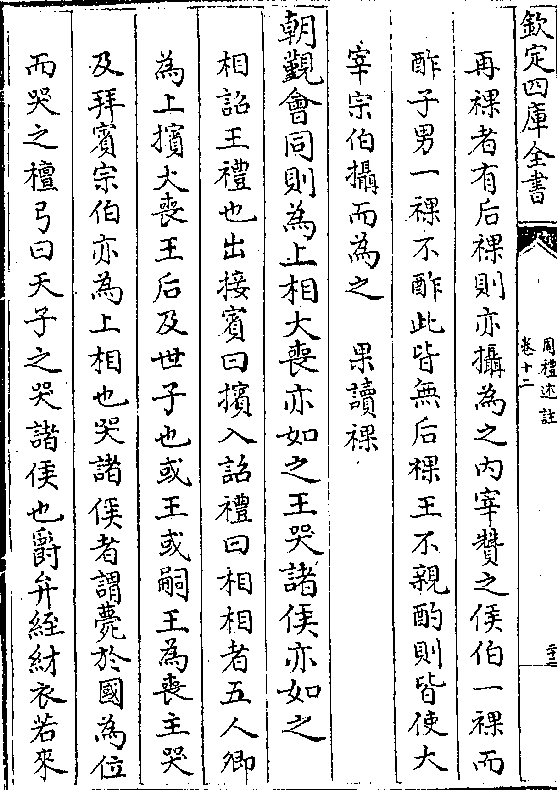 欽定四庫全書
周禮述註
卷十二
再祼者有后祼則亦攝為之内宰贊之侯伯一祼而
酢子男一祼不酢此皆無后祼王不親酌則皆使大
宰宗伯攝而為之　果讀祼
朝覲會同則為上相大喪亦如之王哭諸侯亦如之
相詔王禮也出接賓曰擯入詔禮曰相相者五人卿
為上擯大喪王后及世子也或王或嗣王為喪主哭
及拜賓宗伯亦為上相也哭諸侯者謂薨於國為位
而哭之檀弓曰天子之哭諸侯也爵弁絰紂衣若來